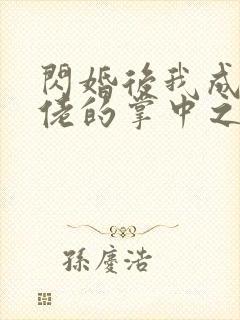 閃婚後我成
佬的掌中之
孫慶浩